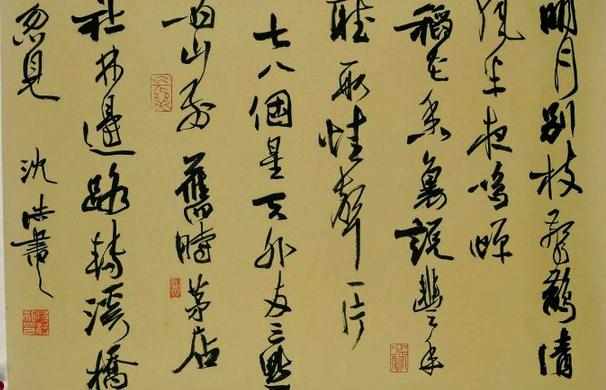 明月別枝驚鵲清
風半夜鳴蟬
稻花香裏說豐年
聽取蛙聲一片
七八個星天外兩三點
雨山前舊時茅店
社林邊路轉溪橋
忽見 沈 書